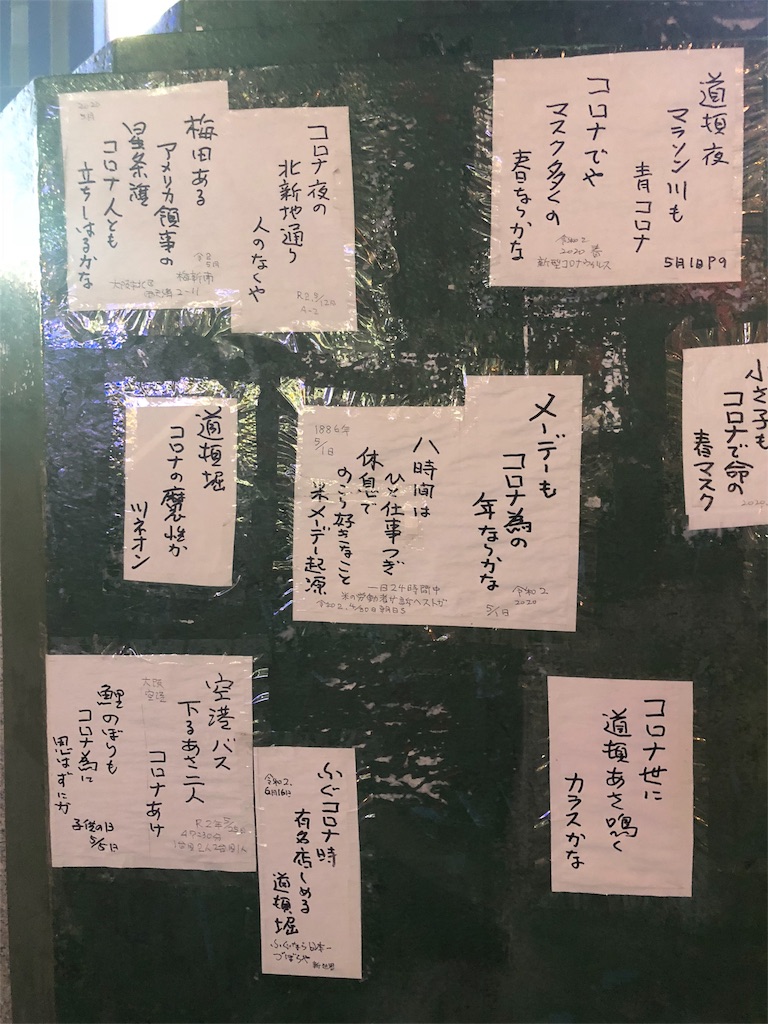 道頓夜
マラソン川も
青コロナ
5月1日P9
コロナでや
マスク多くの
春ならかな
令和2
2020 春
新型コロナウイルス
コロナ夜の
北新地通り
人のなくや
R2.5/12日
4-2
2020
5月
梅田ある
アメリカ領事の
星条旗
コロナ人とも
立ちしはるかな
梅新南
大阪市北区
2-11
小さ子も
コロナで命の
春マスク
メーデーも
コロナ為の
年ならかな
令和2
2020
5/1日
1886年
5/1日
八時間は
ひと仕事つぎ
休息で
のこり好きなこと
米メーデー起源
一日24時間中
米の労働者が
令和2.4/30日
道頓堀
コロナの魔性か
ツネオン
コロナ世に
道頓あさ鳴く
カラスかな
大阪
空港
空港バス
下るあさ二人
コロナあけ
R2年5/25日
4時30分
鯉のぼりも
コロナ為に
思はずにか
子供の日
5/5日
令和2.
6月16日
ふぐコロナ時
有名店しめる
道頓堀
ふぐなら日本一
づぼらや
新世界